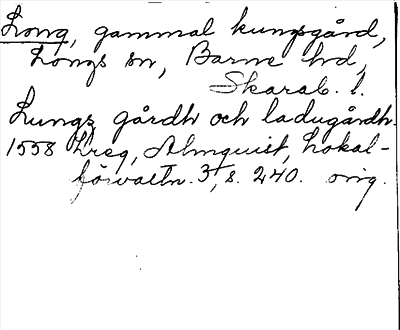 Long, gammal kungsgård,
Longs sn, Barne hd,
Skarab. l.
Lungz gårdh och ladugårdh.
1558 Lreg, Almquist, Lokal-
förvaltn. 3, s. 240. orig.